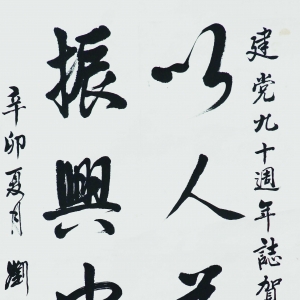 建党九十週年誌賀
以人
振興
辛卯夏月劉